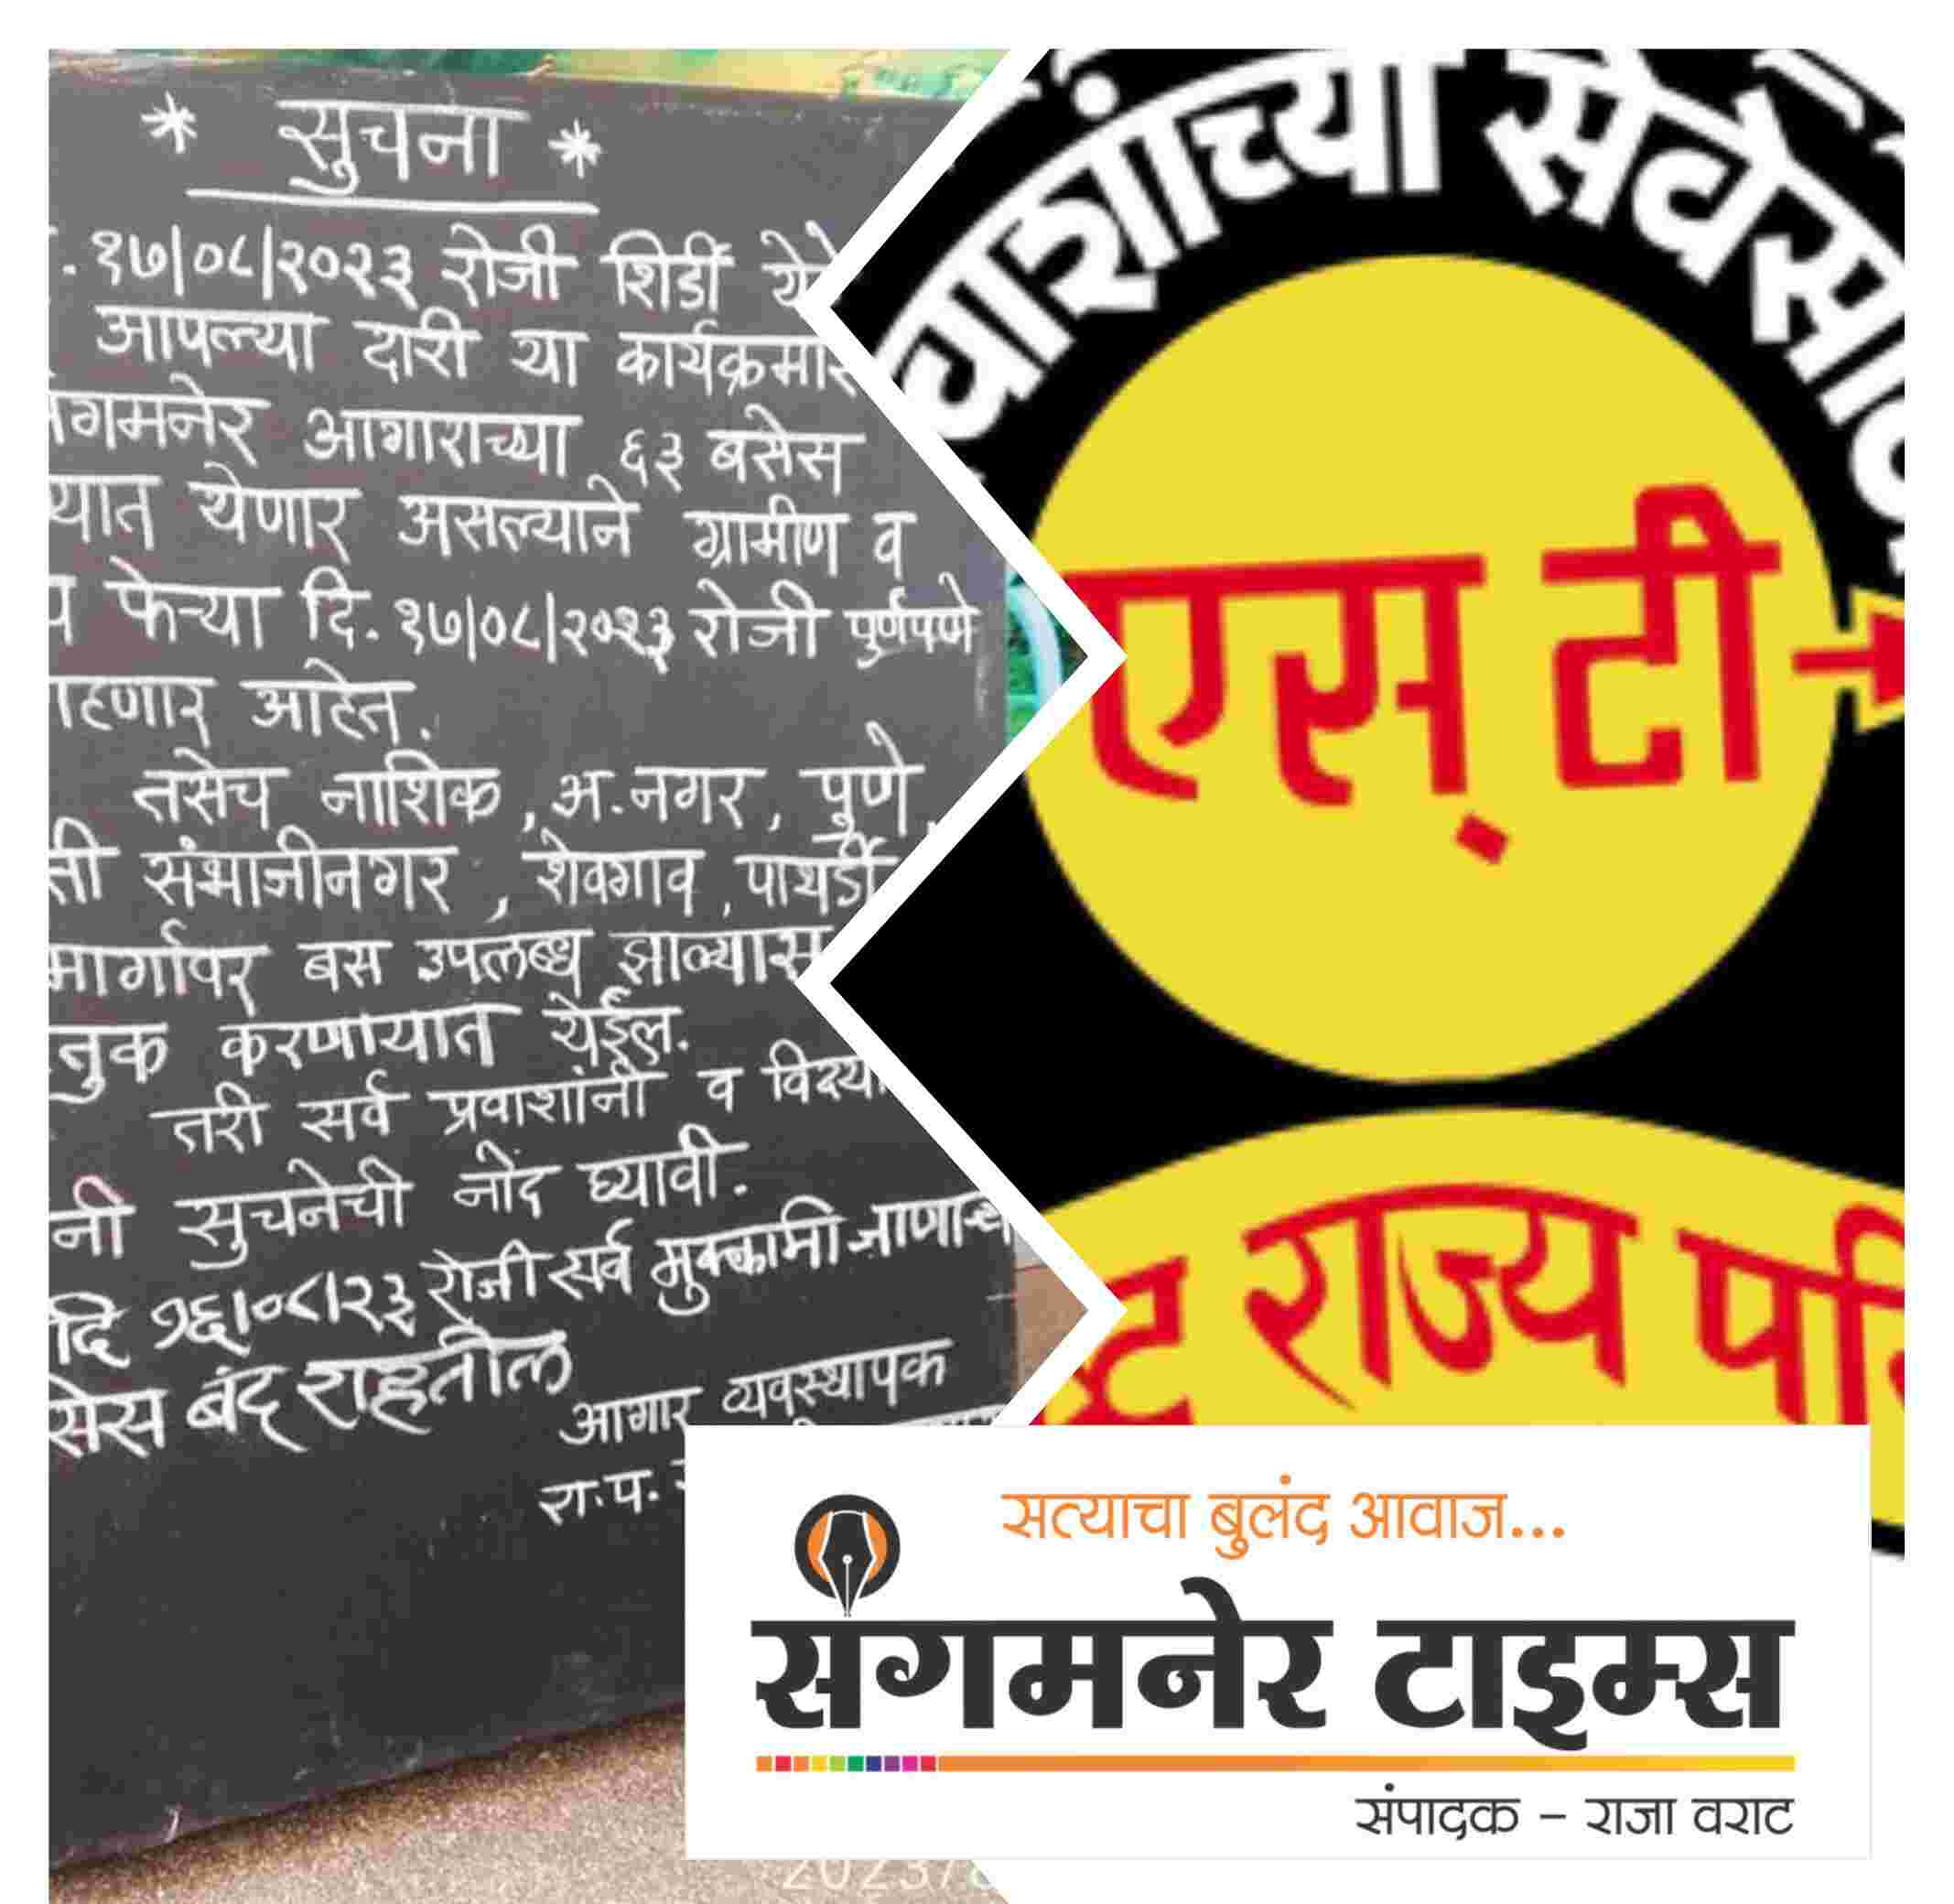 * सुचना *
. १७/०८/२०२३ रोजी शिर्डी येथे
आपल्या दारी या कार्यक्रमास
संगमनेर आगाराच्या ६३ बसेस
यात येणार असल्याने ग्रामीण व
फेऱ्या दि. १७/०८/२०२३ रोजी पुर्णपणे
राहणार आहेत.
तसेच नाशिक, अ.नगर, पुणे,
ती संभाजीनगर, शेवगाव, पाथर्डी
मार्गावर बस उपलब्ध झाल्यास
तुक करणायात येईल.
तरी सर्व प्रवाशांनी व विदया
नी सुचनेची नोंद घ्यावी.
दि १६/०८/२३ रोजी सर्व मुक्कामी जाणाऱ्य
सेस बंद राहतील
आगार व्यवस्थापक
रा.प.
वाशांच्या सेवेसा
एस् टी
ष्ट्र राज्य परि
सत्याचा बुलंद आवाज...
संगमनेर टाइम्स
संपादक – राजा वराट
2023/8